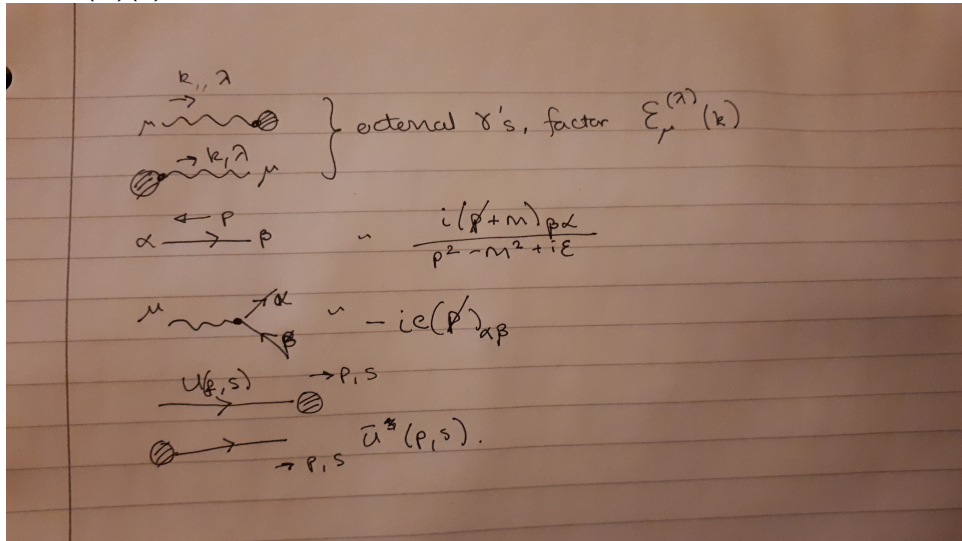 k, λ
μ } external γ's, factor ε_μ^(λ)(k)
→ k, λ μ
← p
α β ~ i(p̸+m)_βα / p² - m² + iε
μ α ~ -ie(p̸)_αβ
β
U(p,s) → p, s
ū^s(p,s).
→ p, s